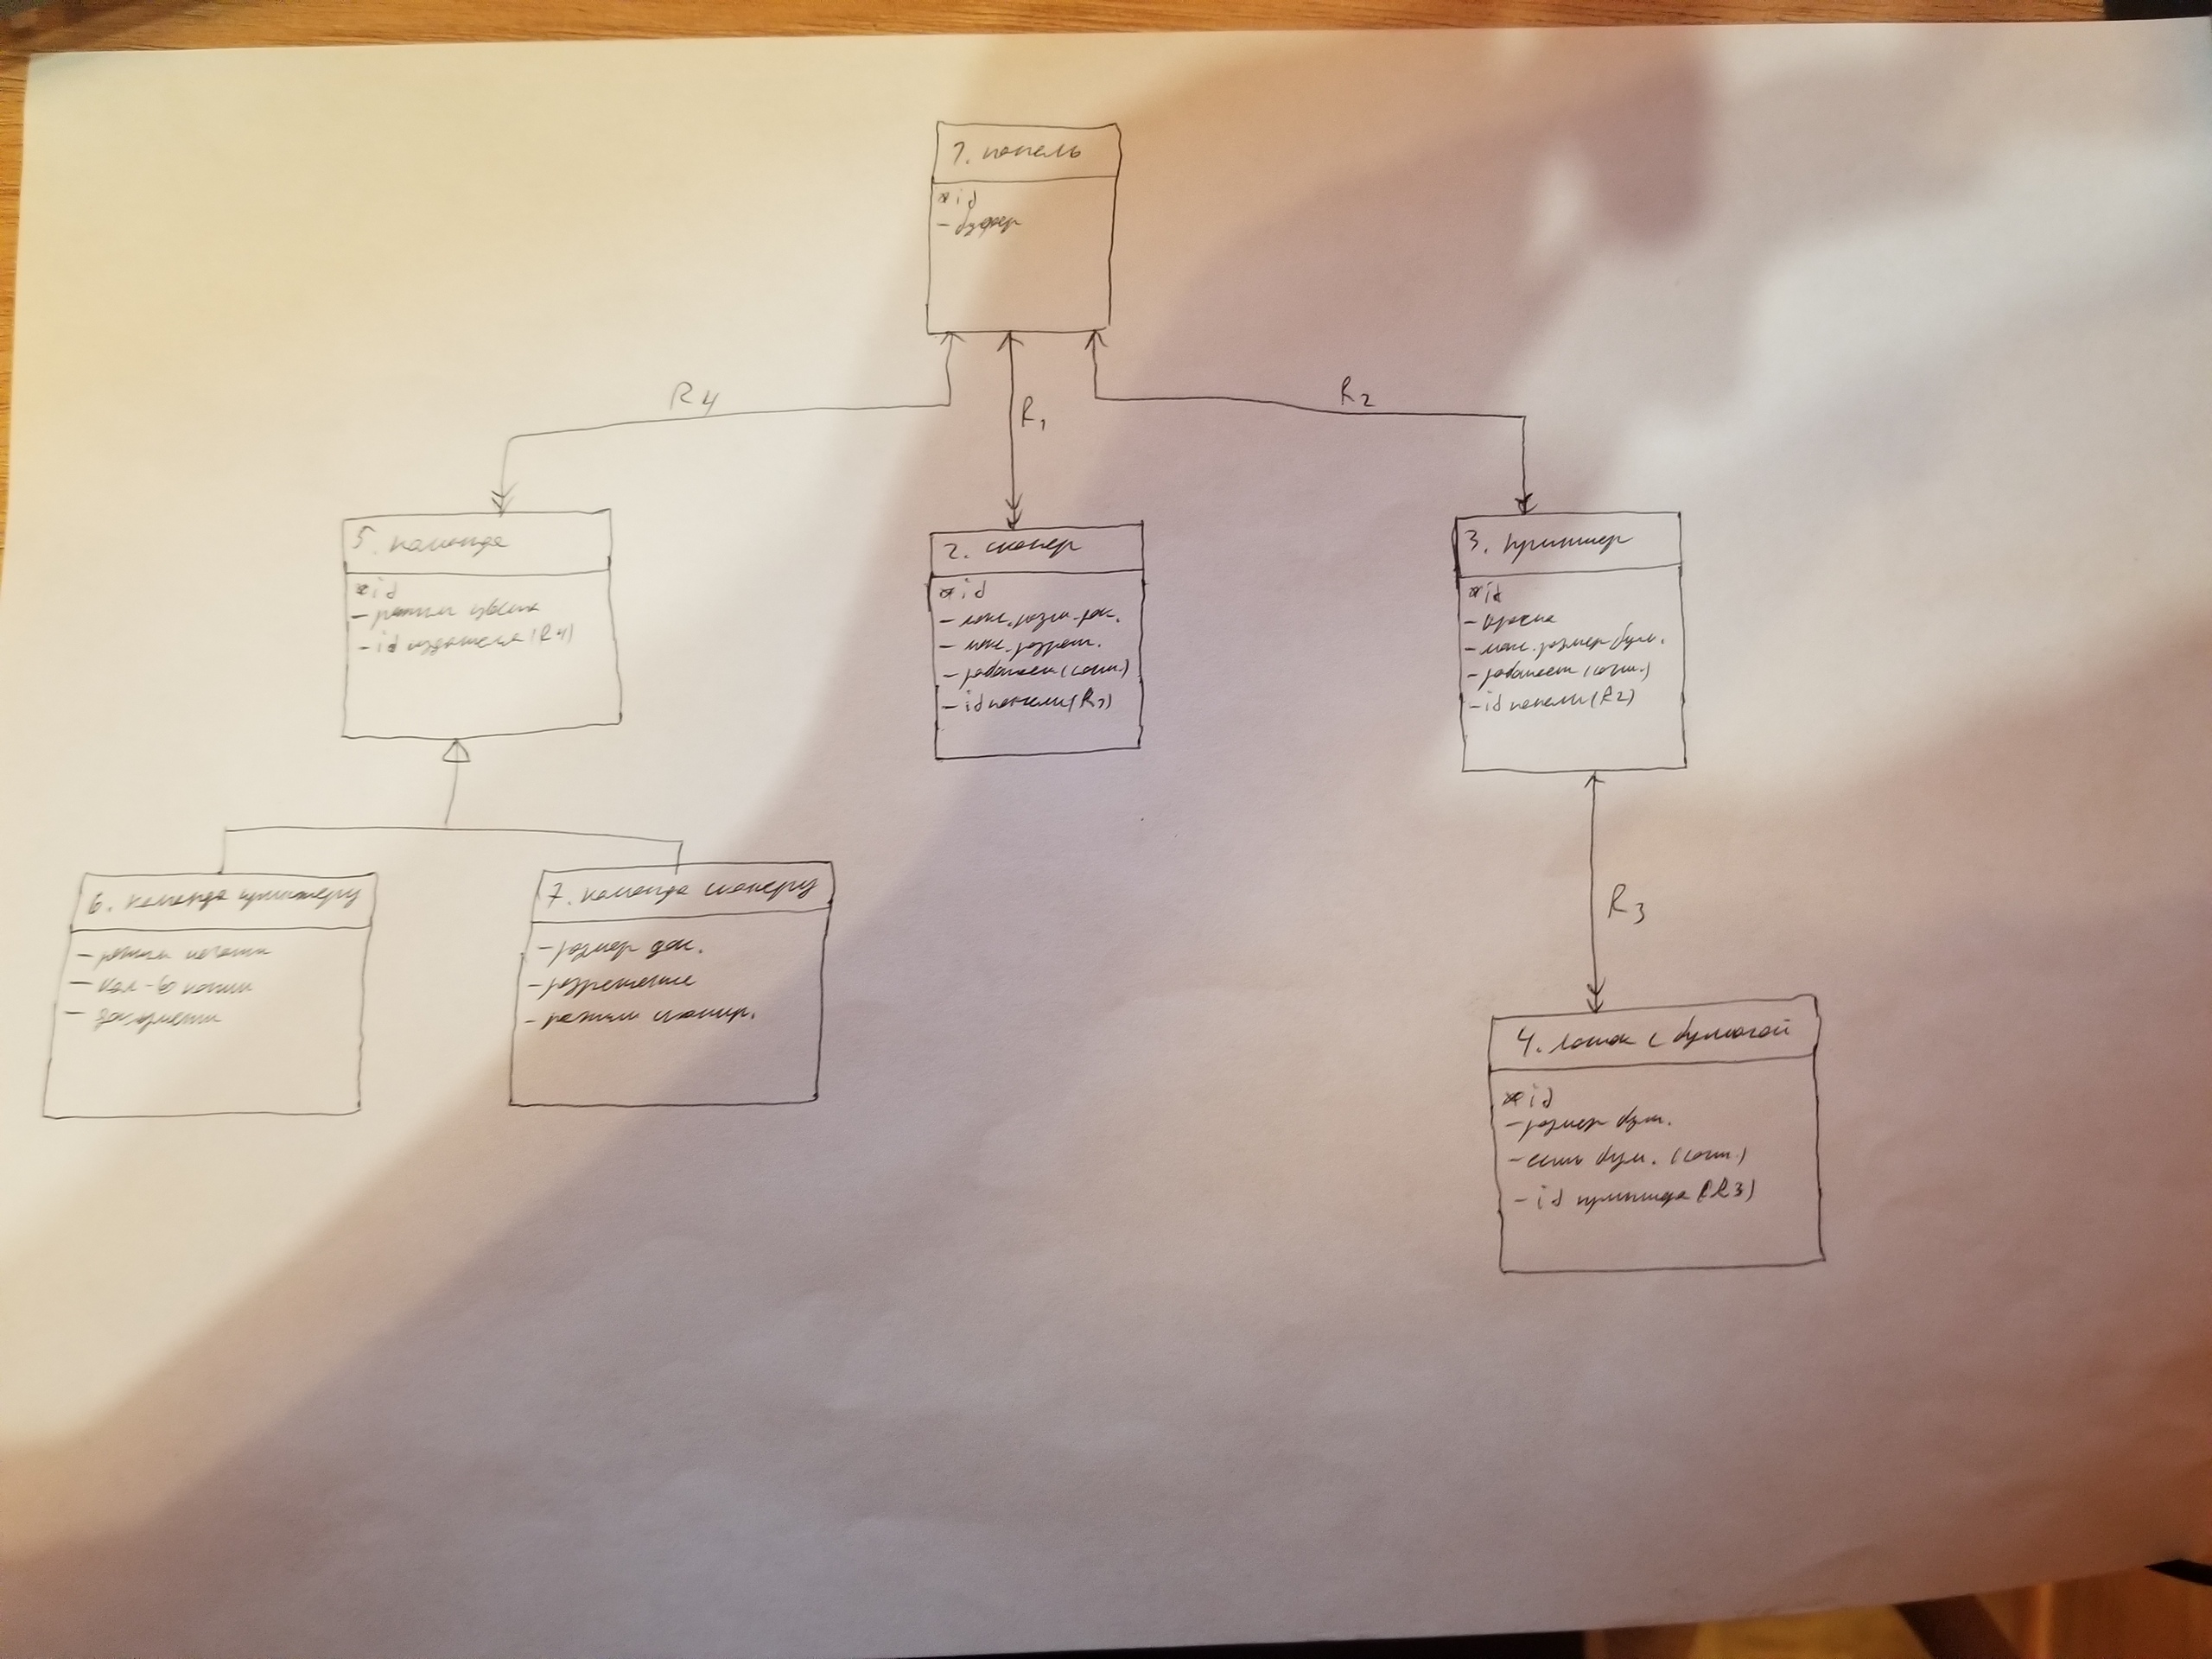 1. панель
* id
- буфер
R4
R1
R2
5. команда
* id
- режим цвета
- id издателя (R4)
2. сканер
* id
- макс. разм. док.
- макс. разреш.
- работает (сост.)
- id панели (R1)
3. принтер
* id
- краска
- макс. размер бум.
- работает (сост.)
- id панели (R2)
6. команда принтеру
- режим печати
- кол-во копий
- документ
7. команда сканеру
- размер док.
- разрешение
- режим сканир.
R3
4. лоток с бумагой
* id
- размер бум.
- есть бум. (сост.)
- id (R3)